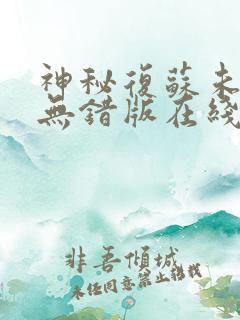 神秘復蘇未
無錯版在綫
非吾傾城
未經同意禁止轉載